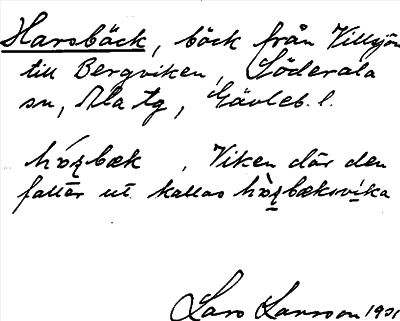 Harsbäck, bäck från Villsjön
till Bergviken, Söderala
sn, Ala tg, Gävleb. l.
Viken där den
faller ut kallas
Lars Larsson 1931